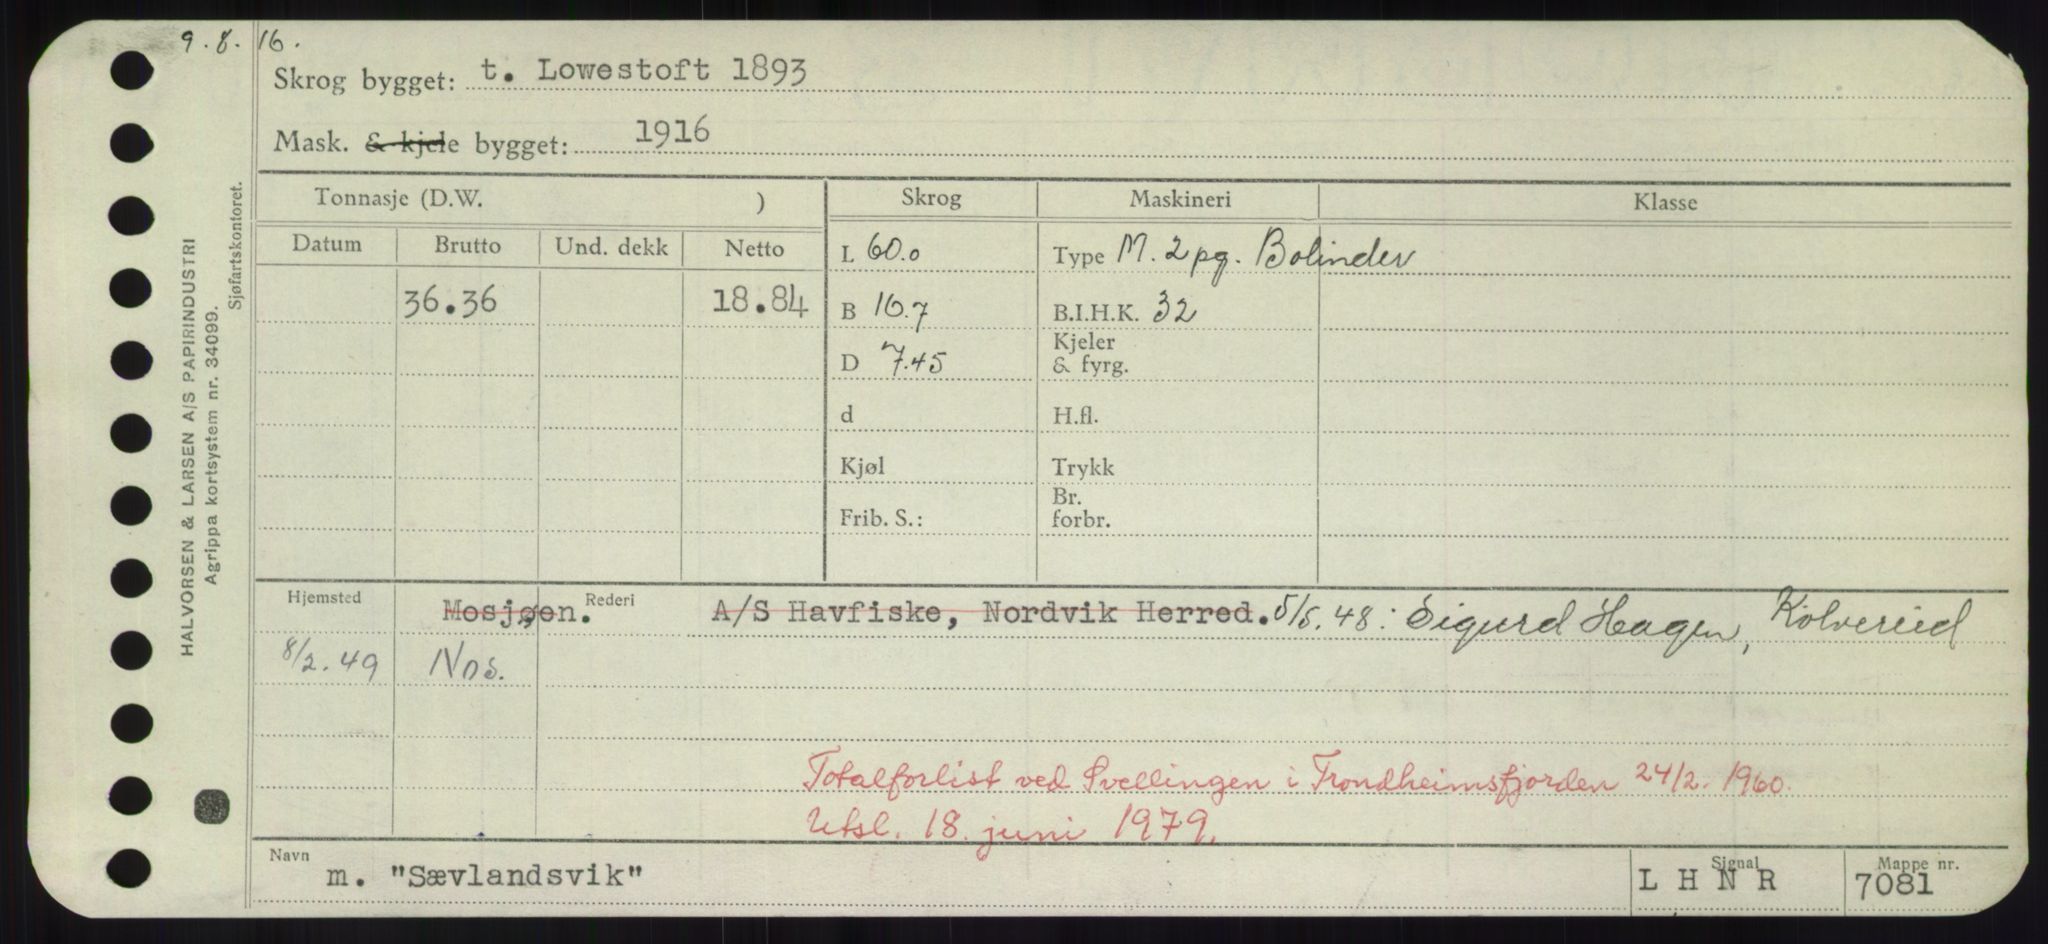 9.8.16.
Skrog bygget: t. Lowestoft 1893
Mask. & kjele bygget: 1916
HALVORSEN & LARSEN A/S PAPIRINDUSTRI
Agrippa kortsystem nr. 34099.
Sjøfartskontoret.
Tonnasje (D.W. ) Skrog Maskineri Klasse
Datum Brutto Und. dekk Netto
L 60.0 Type M. 2 pg. Bolinder
36.36 18.84 B 16.7 B.I.H.K. 32
D 7.45 Kjeler & fyrg.
d H.fl.
Kjøl Trykk
Frib. S.: Br. forbr.
Hjemsted Mosjøen. Rederi A/S Havfiske, Nordvik Herred. 5/5.48: Sigurd Hagen, Kolvereid
8/2.49 Nos.
Totalforlist ved Svellingen i Trondheimsfjorden 24/2. 1960.
Utsl. 18. juni 1979.
Navn m. "Sævlandsvik" Signal L H N R Mappe nr. 7081